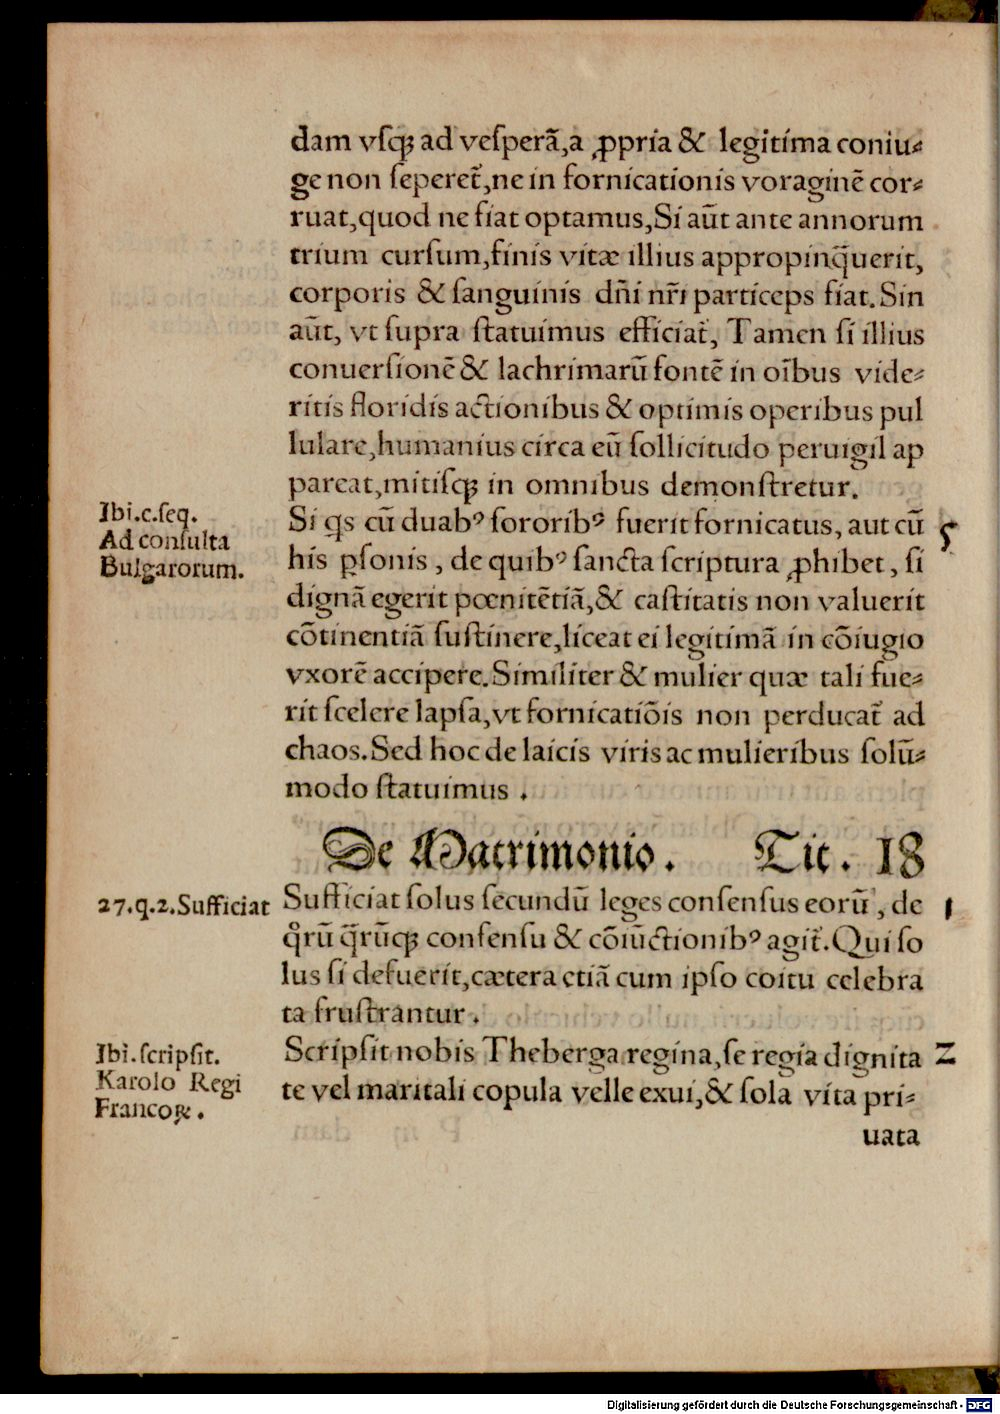 dam vſqꝫ ad veſperā, a ꝓpria & legitima coniu⸗
ge non ſeperet̃, ne in fornicationis voraginē cor⸗
ruat, quod ne fiat optamus, Si aūt ante annorum
trium curſum, finis vitæ illius appropinq̃uerit,
corporis & ſanguinis dñi nr̃i particeps fiat. Sin
aūt, vt ſupra ſtatuimus efficiat̃, Tamen ſi illius
conuerſionē & lachrimarū fontē in oībus vide⸗
ritis floridis actionibus & optimis operibus pul
lulare, humanius circa eū ſollicitudo peruigil ap
pareat, mitiſqꝫ in omnibus demonſtretur.
Ibi.c.ſeq.
Ad conſulta
Bulgarorum.
Si qs cū duabꝰ ſororibꝰ fuerit fornicatus, aut cū 5
his ꝑſonis, de quibꝰ ſancta ſcriptura ꝓhibet, ſi
dignā egerit pœnitētiā, & caſtitatis non valuerit
cōtinentiā ſuſtinere, liceat ei legitimā in cōiugio
vxorē accipere. Similiter & mulier quæ tali fue⸗
rit ſcelere lapſa, vt fornicatiōis non perducat̃ ad
chaos. Sed hoc de laicis viris ac mulieribus ſolū⸗
modo ſtatuimus.
De Matrimonio. Tit. 18
27.q.2.Sufficiat
Sufficiat ſolus ſecundū leges conſenſus eorū, de 1
qͦrū q̃rūqꝫ conſenſu & cōiūctionibꝰ agit̃. Qui ſo
lus ſi defuerit, cætera etiā cum ipſo coitu celebra
ta fruſtrantur.
Ibi.ſcripſit.
Karolo Regi
Francoꝝ.
Scripſit nobis Theberga regina, ſe regia dignita 2
te vel maritali copula velle exui, & ſola vita pri⸗
uata
Digitalisierung gefördert durch die Deutsche Forschungsgemeinschaft - DFG